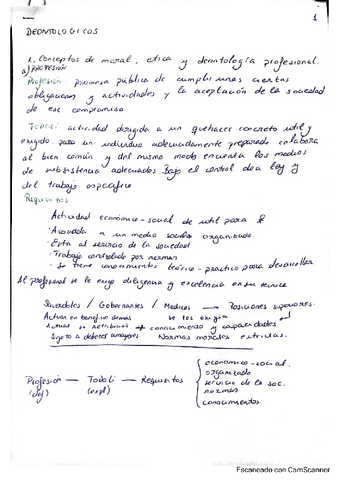 1
DEONTOLOGICOS
1. Conceptos de moral, etica y deontología profesional.
a) PROFESIÓN
Profesión: promesa pública de cumplir unas ciertas
obligaciones y actividades y la aceptación de la sociedad
de ese compromiso
actividad dirigida a un quehacer concreto util y
exigido. un individuo adecuadamente preparado colabora
al bien común y del mismo modo encuentra los medios
de subsistencia adecuados. Bajo el control de la ley y
del trabajo específico
Requisitos
Actividad económico-social de util para
a un medio social organizado.
· Esta al servicio de la sociedad
· Trabajo controlado por normas
· Se tiene conocimientos teórico-practico para desarrollar
Al profesional se le exige diligencia y excelencia en su tecnica
Sacerdotes / Gobernantes / Medicos → Posiciones superiores.
Actuar en beneficio demás se les exigia
Actuar sin conocimiento y capacidades
Sujeto a deberes Normas morales estrictas.
Profesión — — Requisitos
(def) (expl)
economico-social.
organizado
servicio de la soc.
normas
conocimientos.
Escaneado con CamScanner